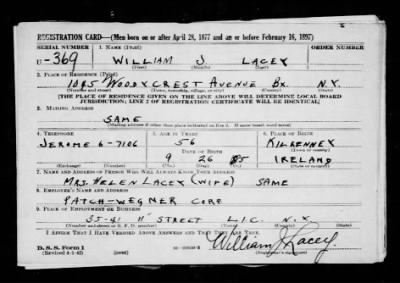 REGISTRATION CARD—(Men born on or after April 28, 1877 and on or before February 16, 1897)
SERIAL NUMBER 1. NAME (Print) ORDER NUMBER
U-369 WILLIAM J LACEY
(First) (Middle) (Last)
2. PLACE OF RESIDENCE (Print)
1085 WOODYCREST AVENUE BX. N.Y.
(Number and street) (Town, township, village, or city) (County) (State)
[THE PLACE OF RESIDENCE GIVEN ON THE LINE ABOVE WILL DETERMINE LOCAL BOARD
JURISDICTION; LINE 2 OF REGISTRATION CERTIFICATE WILL BE IDENTICAL]
3. MAILING ADDRESS
SAME
[Mailing address if other than place indicated on line 2. If same insert word same]
4. TELEPHONE 5. AGE IN YEARS 6. PLACE OF BIRTH
JEROME 6-7106 56 KILKENNEY
DATE OF BIRTH (Town or county)
9 26 85 IRELAND
(Exchange) (Number) (Mo.) (Day) (Yr.) (State or country)
7. NAME AND ADDRESS OF PERSON WHO WILL ALWAYS KNOW YOUR ADDRESS
MRS. HELEN LACEY (WIFE) SAME
8. EMPLOYER'S NAME AND ADDRESS
PATCH-WEGNER CORP
9. PLACE OF EMPLOYMENT OR BUSINESS
35-41 11 STREET L.I.C. N.Y.
(Number and street or R. F. D. number) (Town) (County) (State)
I AFFIRM THAT I HAVE VERIFIED ABOVE ANSWERS AND THAT THEY ARE TRUE.
William J. Lacey
D. S. S. Form 1
(Revised 4-1-42) (over) (Registrant's signature)